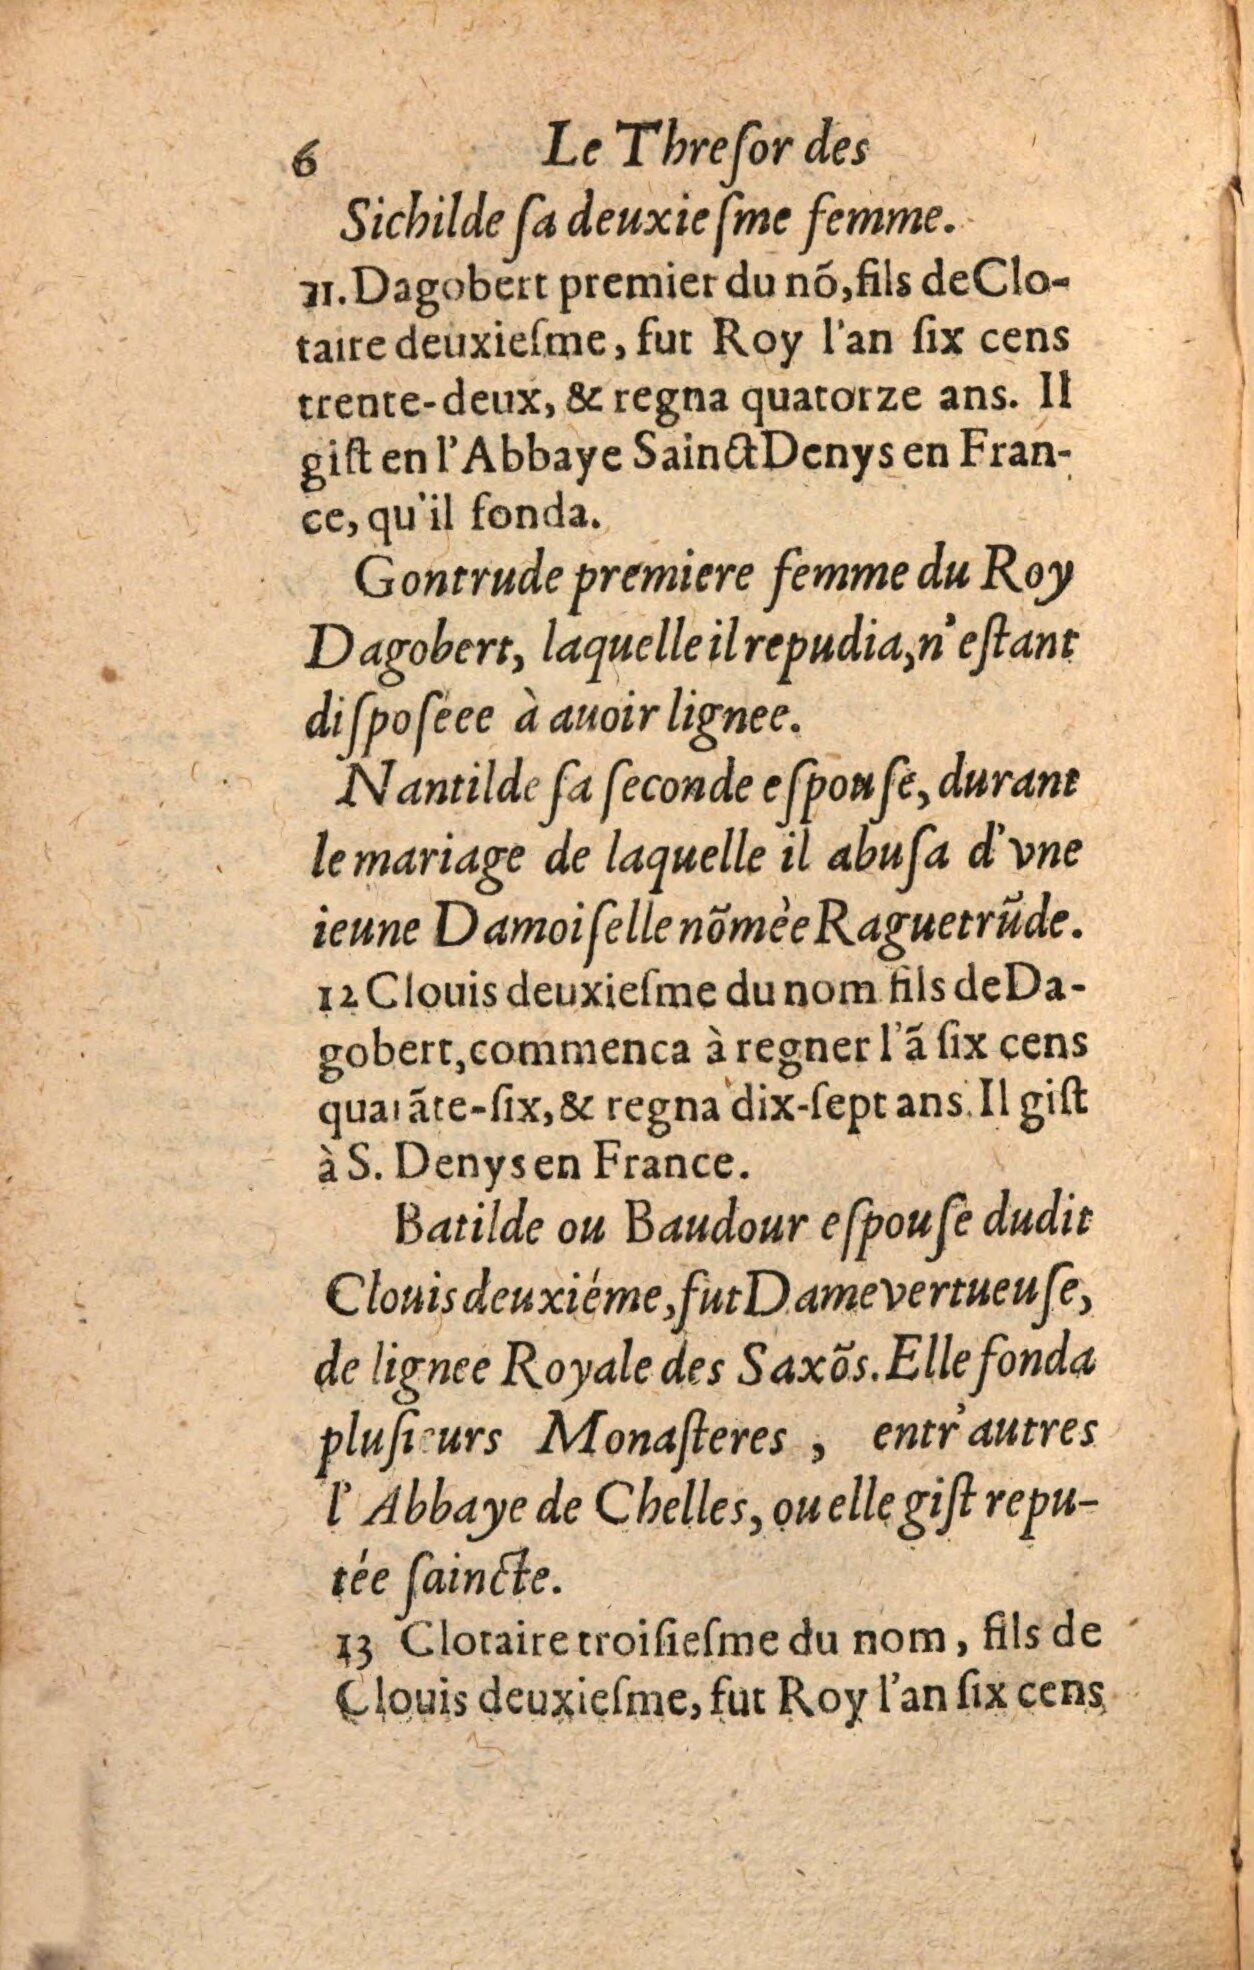 6 Le Threſor des
Sichilde ſa deuxieſme femme.
11. Dagobert premier du nõ, fils de Clo-
taire deuxieſme, fut Roy l'an ſix cens
trente-deux, & regna quatorze ans. Il
giſt en l'Abbaye Sainct Denys en Fran-
ce, qu'il fonda.
Gontrude premiere femme du Roy
Dagobert, laquelle il repudia, n'eſtant
diſpoſéee à auoir lignee.
Nantilde ſa ſeconde eſpouſe, durant
le mariage de laquelle il abuſa d'vne
ieune Damoiſelle nõmèe Raguetrũde.
12 Clouis deuxieſme du nom fils de Da-
gobert, commenca à regner l'ã ſix cens
quarãte-ſix, & regna dix-ſept ans. Il giſt
à S. Denys en France.
Batilde ou Baudour eſpouſe dudit
Clouis deuxiéme, fut Dame vertueuſe,
de lignee Royale des Saxõs. Elle fonda
pluſieurs Monaſteres, entr'autres
l'Abbaye de Chelles, ou elle giſt repu-
tée ſaincte.
13 Clotaire troiſieſme du nom, fils de
Clouis deuxieſme, fut Roy l'an ſix cens